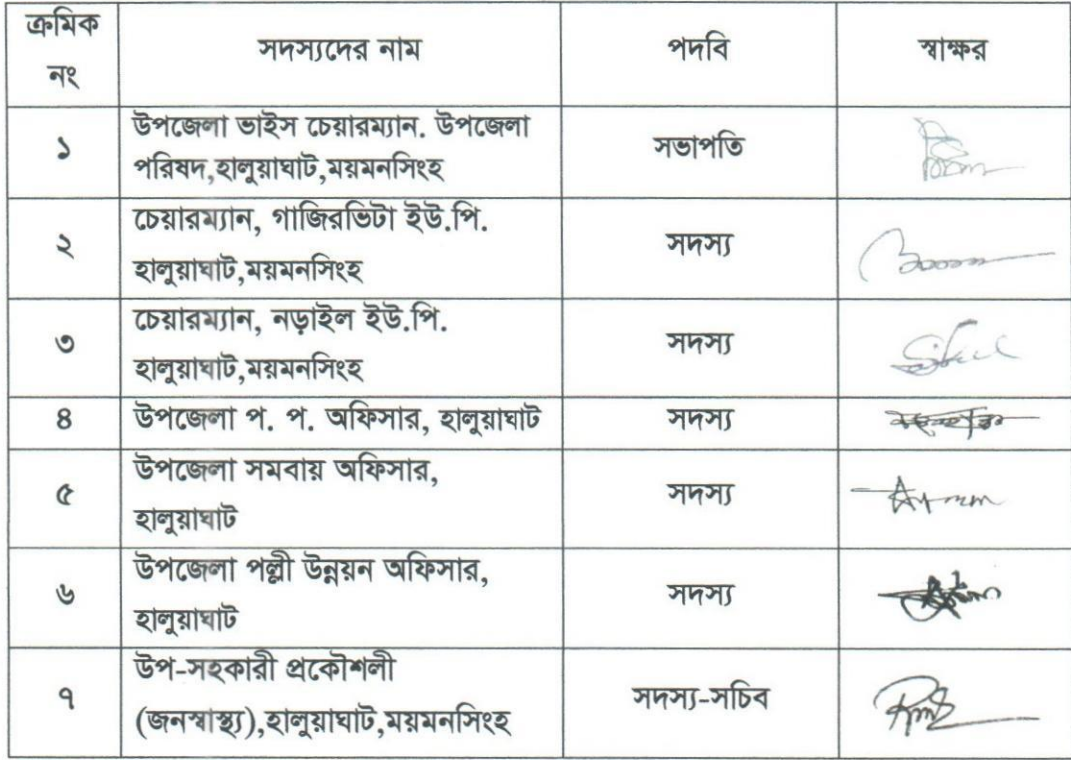 ক্রমিক
নং
সদস্যদের নাম
পদবি
স্বাক্ষর
১
উপজেলা ভাইস চেয়ারম্যান. উপজেলা
পরিষদ,হালুয়াঘাট,ময়মনসিংহ
সভাপতি
২
চেয়ারম্যান, গাজিরভিটা ইউ.পি.
হালুয়াঘাট,ময়মনসিংহ
সদস্য
৩
চেয়ারম্যান, নড়াইল ইউ.পি.
হালুয়াঘাট,ময়মনসিংহ
সদস্য
৪
উপজেলা প. প. অফিসার, হালুয়াঘাট
সদস্য
৫
উপজেলা সমবায় অফিসার,
হালুয়াঘাট
সদস্য
৬
উপজেলা পল্লী উন্নয়ন অফিসার,
হালুয়াঘাট
সদস্য
৭
উপ-সহকারী প্রকৌশলী
(জনস্বাস্থ্য),হালুয়াঘাট,ময়মনসিংহ
সদস্য-সচিব